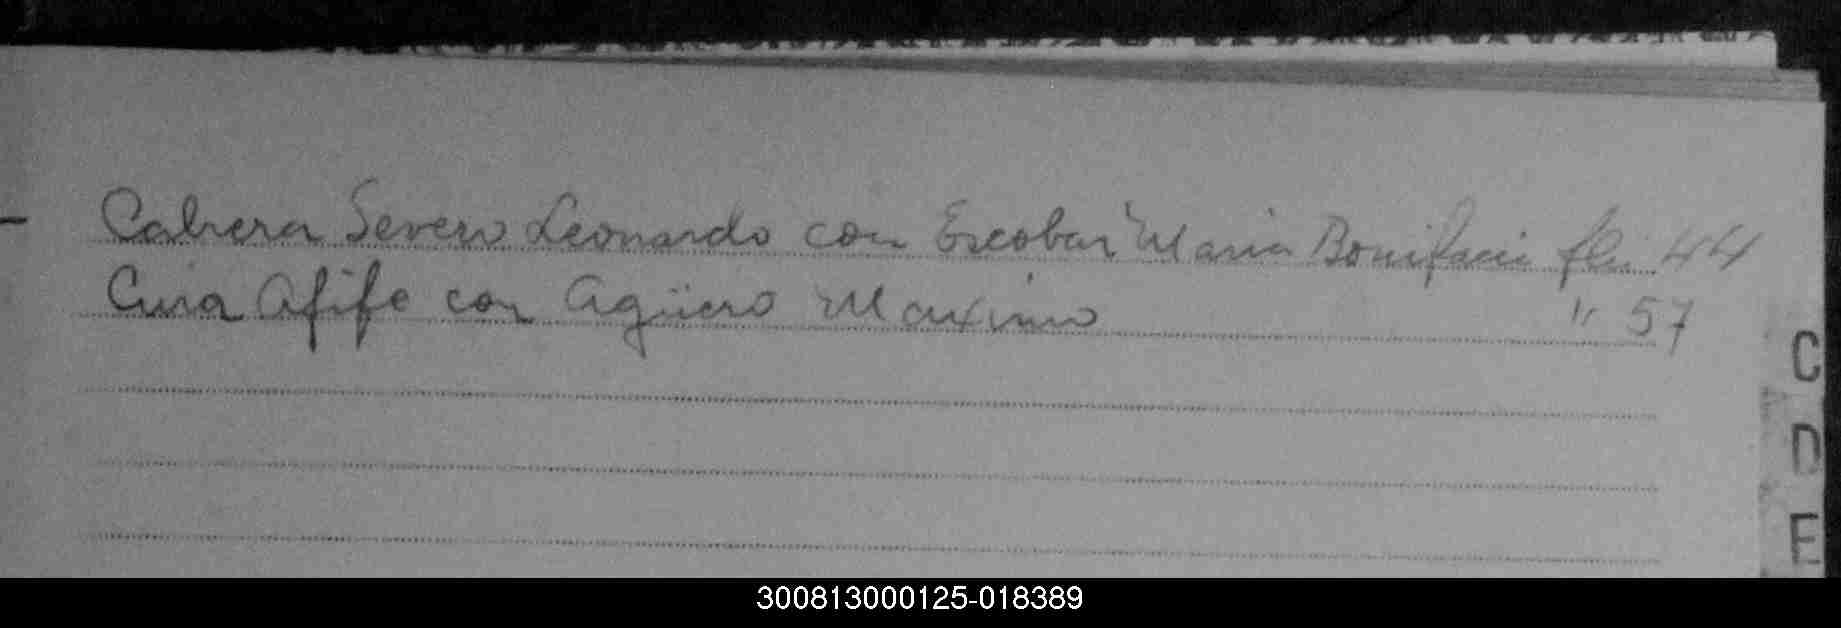 Cabrera Severo Leonardo con Escobar Maria Bonifaci flio 44
Cura Afife con Agüero Maximo " 57
C
D
E
300813000125-018389